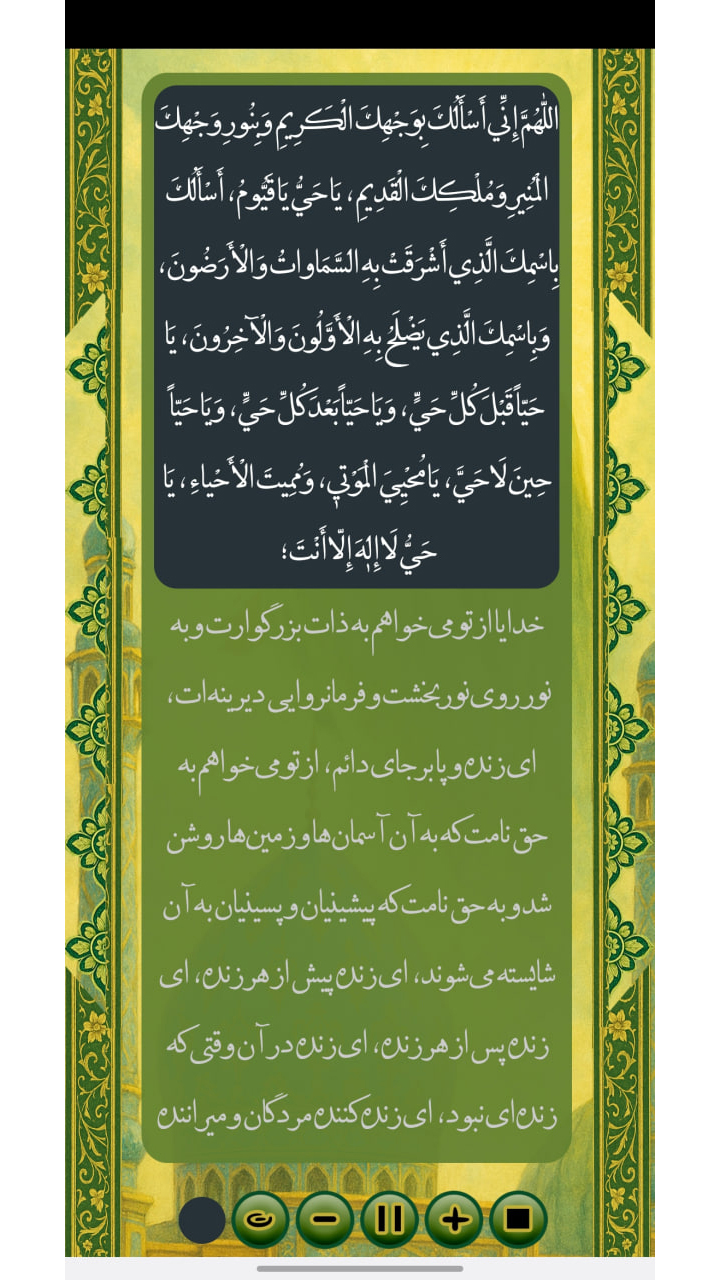 اللّٰهُمَّ إِنِّي أَسْأَلُكَ بِوَجْهِكَ الْكَرِيمِ وَبِنُورِ وَجْهِكَ
الْمُنِيرِ وَمُلْكِكَ الْقَدِيمِ، يَا حَيُّ يَا قَيُّومُ، أَسْأَلُكَ
بِاسْمِكَ الَّذِي أَشْرَقَتْ بِهِ السَّمَاواتُ وَالْأَرَضُونَ،
وَبِاسْمِكَ الَّذِي يَصْلَحُ بِهِ الْأَوَّلُونَ وَالْآخِرُونَ، يَا
حَيّاً قَبْلَ كُلِّ حَيٍّ، وَيَا حَيّاً بَعْدَ كُلِّ حَيٍّ، وَيَا حَيّاً
حِينَ لَا حَيَّ، يَا مُحْيِيَ الْمَوْتىٰ، وَمُمِيتَ الْأَحْياءِ، يَا
حَيُّ لَا إِلٰهَ إِلّا أَنْتَ؛
خدایا از تو می‌خواهم به ذات بزرگوارت و به
نور روی نوربخشت و فرمانروایی دیرینه‌ات،
ای زنده و پابرجای دائم، از تو می‌خواهم به
حق نامت که به آن آسمان‌ها و زمین‌ها روشن
شد و به حق نامت که پیشینیان و پسینیان به آن
شایسته می‌شوند، ای زنده پیش از هر زنده، ای
زنده پس از هر زنده، ای زنده در آن وقتی که
زنده‌ای نبود، ای زنده‌کننده مردگان و میراننده